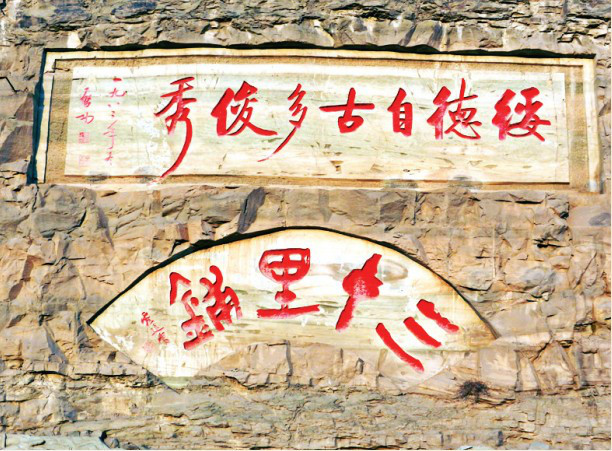 绥德自古多俊秀
一九八二年
三十里铺